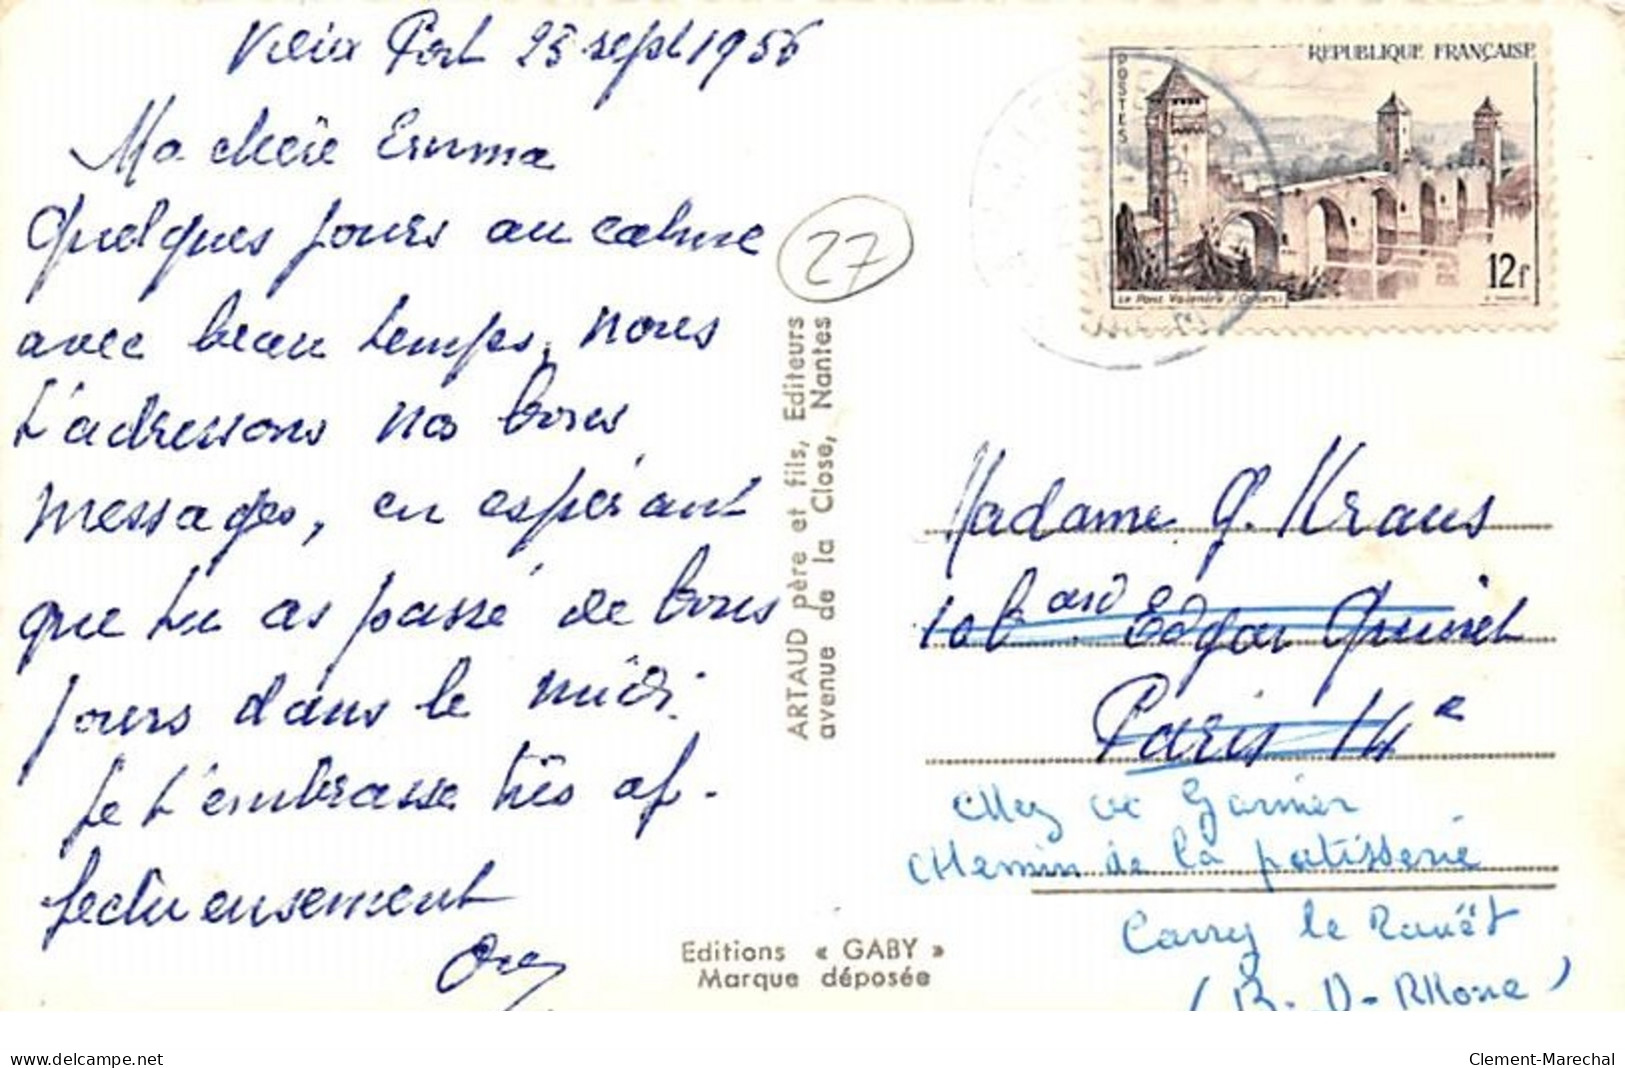 Vieux Port 25 sept 1956
Ma chère Emma
Quelques jours au calme
avec beau temps, nous
t'adressons nos bons
messages, en espérant
que tu as passé de bons
jours dans le midi.
Je t'embrasse très af-
fectueusement
27
ARTAUD père et fils, Editeurs
avenue de la Close, Nantes
Editions « GABY »
Marque déposée
REPUBLIQUE FRANÇAISE
POSTES
12f
Le Pont Valentré (Cahors)
Madame G. Kraus
10 bard Edgar Quinet
Paris 14e
chez de Garnier
chemin de la patisserie
Carry le Rouët
(B. D- Rhone)
delcampe.net
Clement-Marechal